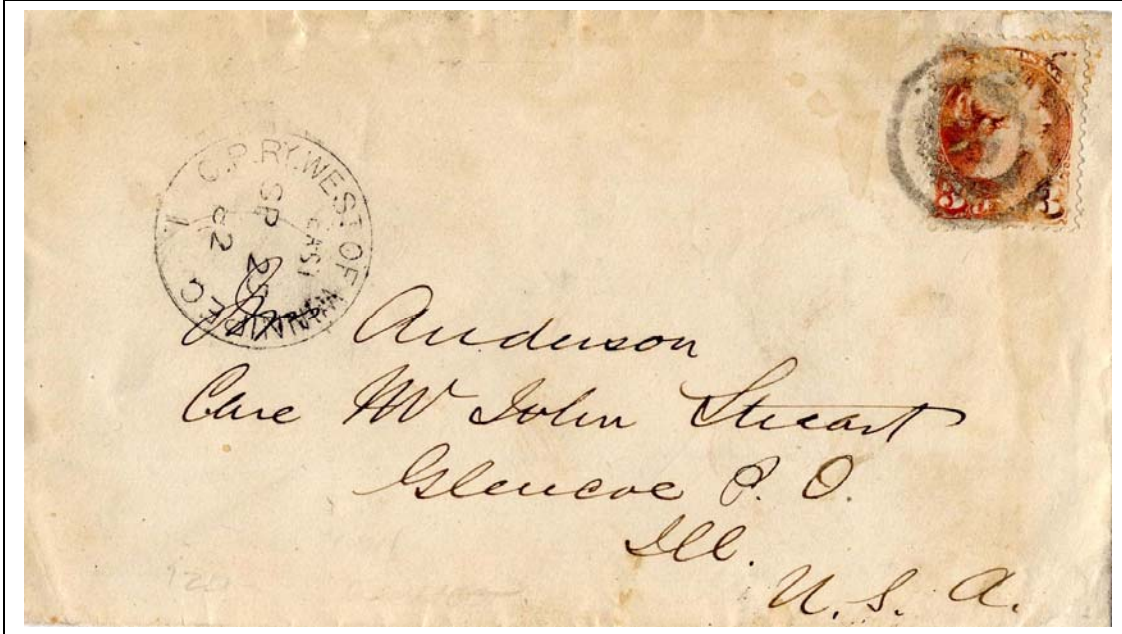 C.P.RY.WEST OF WINNIPEG
EAST
SP
82
Jno Anderson
Care Mr John Stuart
Glencoe P. O.
Ill.
U. S. A.
3 3
120